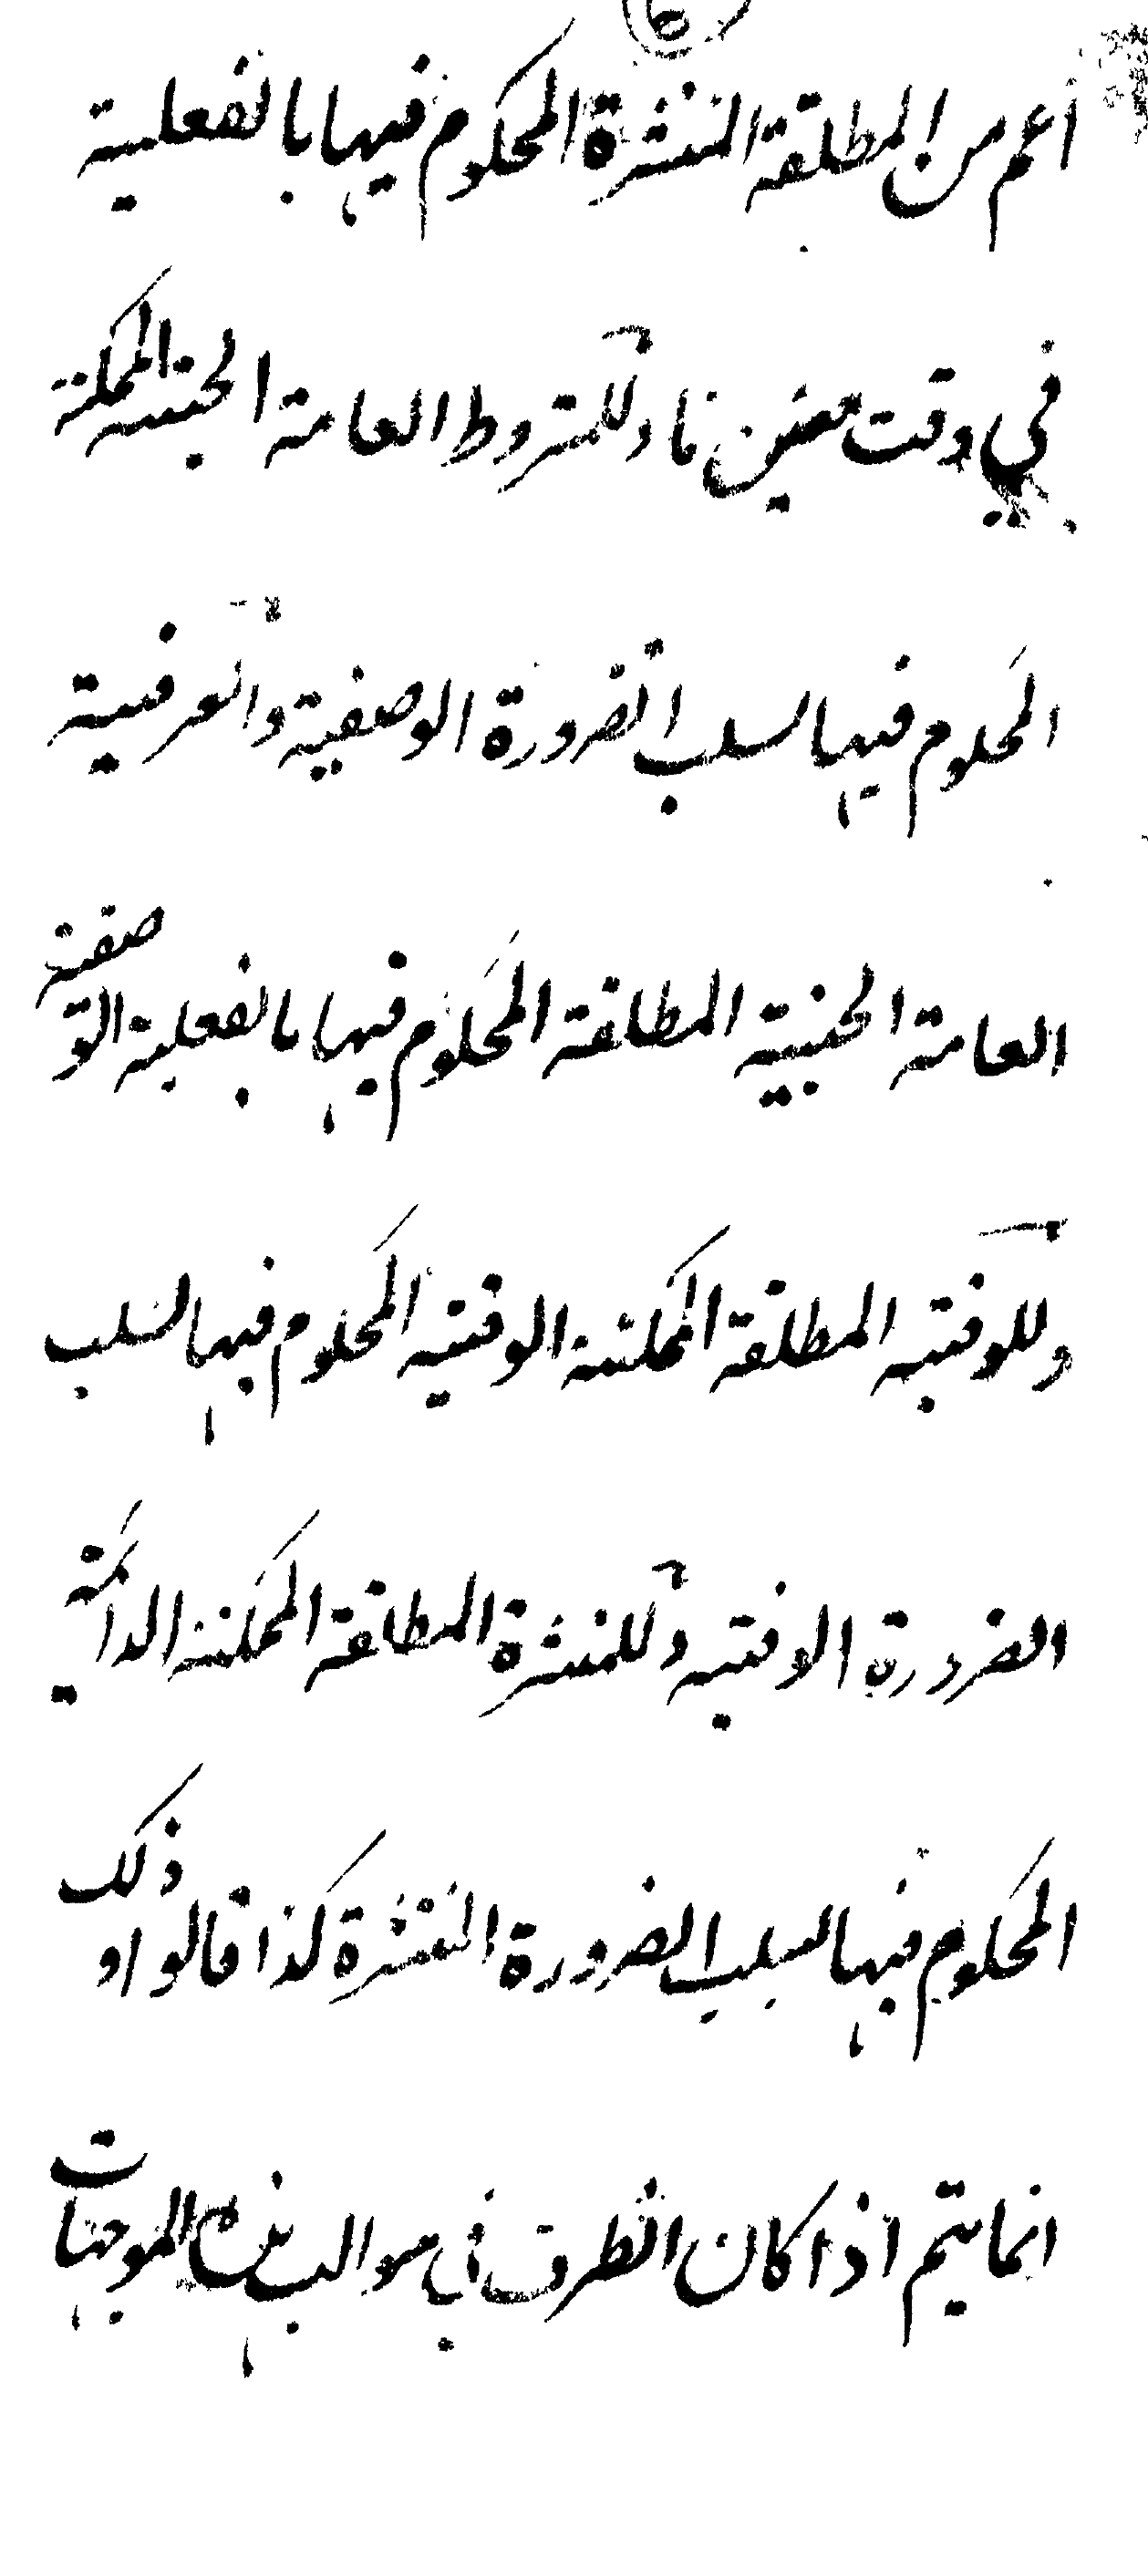 أعم من المطلقة المنتشرة المحكوم فيها بالفعلية
في وقت معين ما وللمشروط العامة الحينية الممكنة
المحكوم فيها بسلب الضرورة الوصفية وللعرفية
العامة الحينية المطلقة المحكوم فيها بالفعلية الوصفية
وللوقتية المطلقة الممكنة الوقتية المحكوم فيها بسلب
الضرورة الوقتية وللمنتشرة المطلقة الممكنة الدائمة
المحكوم فيها بسلب الضرورة المنتشرة كذا قالوا وذلك
انما يتم اذا كان الظرف في سوالب هذه الموجهات